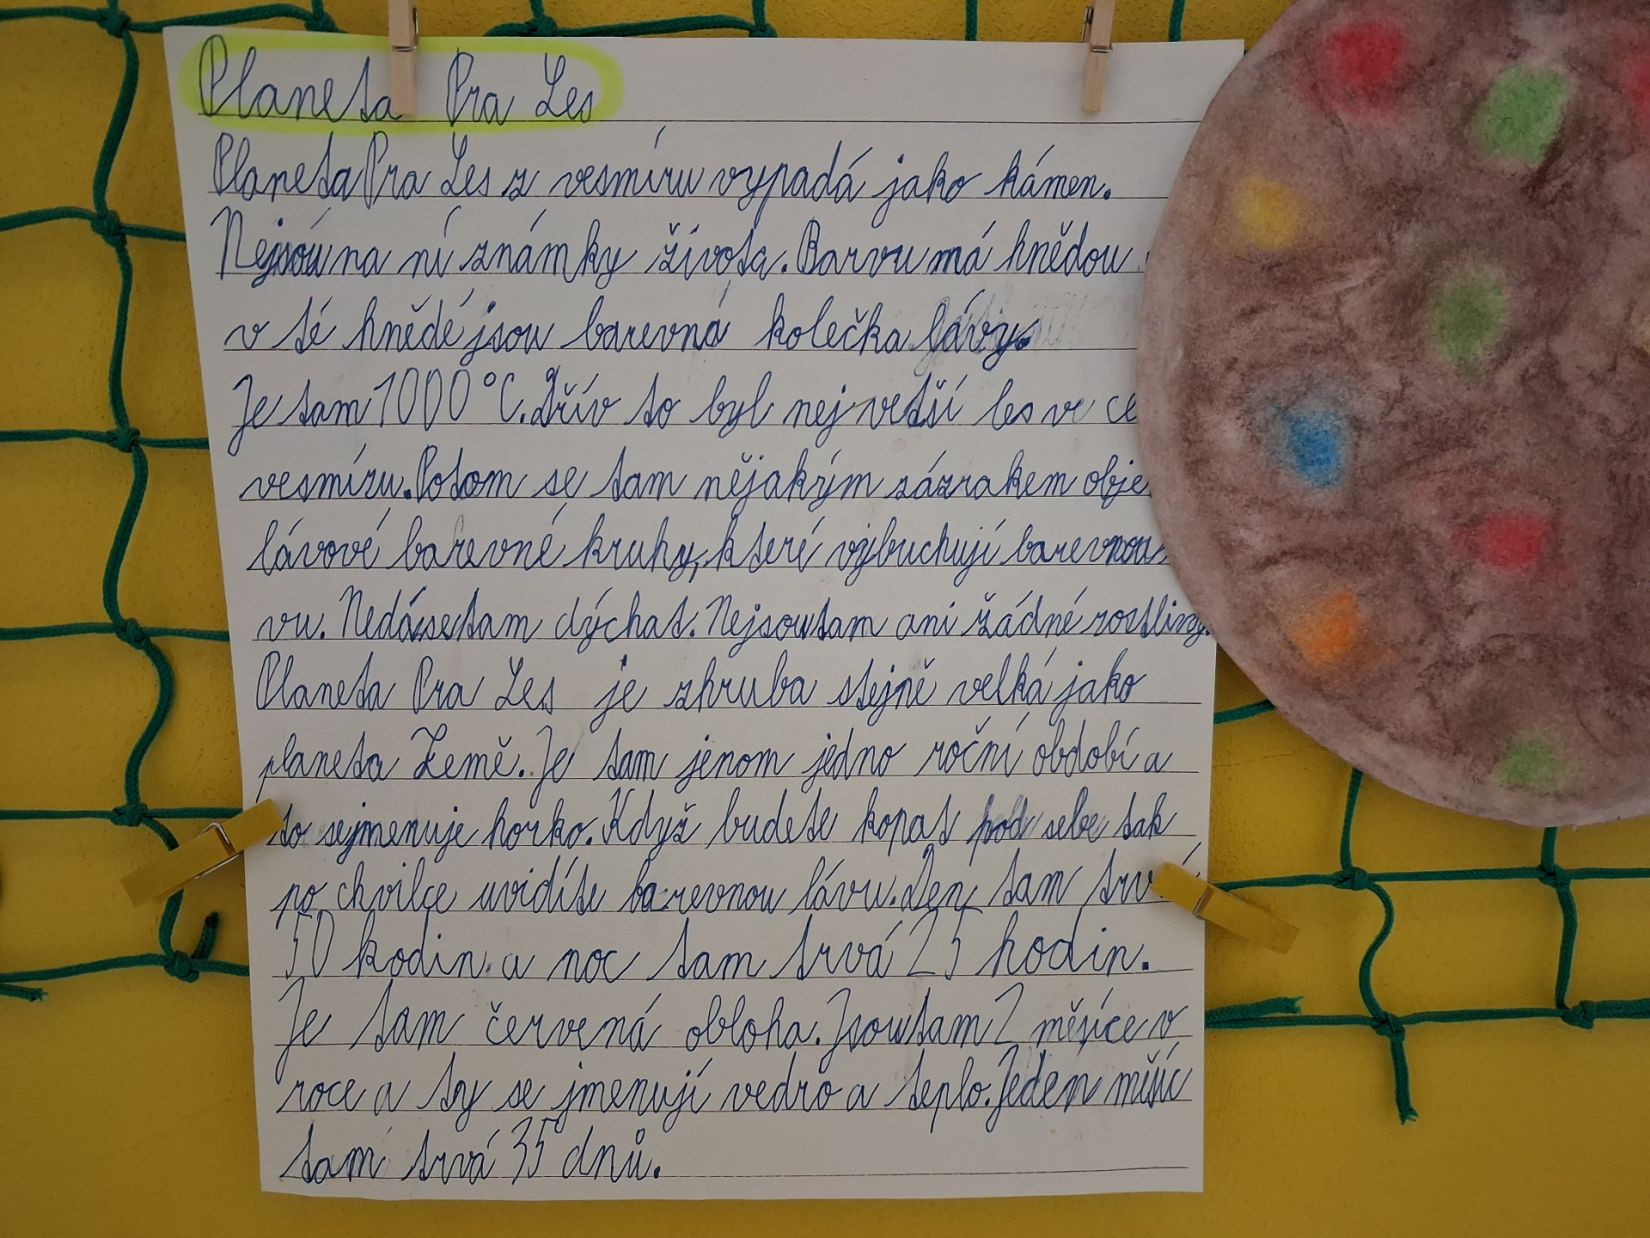 Planeta Pra Les
Planeta Pra Les z vesmíru vypadá jako kámen.
Nejsou na ní známky života. Barvu má hnědou
v té hnědé jsou barevná kolečka lávy.
Je tam 1000°C. Dřív to byl nej vetší les v ce
vesmíru. Potom se tam nějakým zázrakem obje
lávové barevné kruhy, které vybuchují barevnou
vu. Nedá se tam dýchat. Nejsou tam ani žádné rostliny.
Planeta Pra Les je zhruba stejně velká jako
planeta Země. Je tam jenom jedno roční období a
to sejmenuje horko. Když budete kopat pod sebe tak
po chvilce uvidíte barevnou lávu. Den tam trvá
50 hodin a noc tam trvá 25 hodin.
Je tam červená obloha. Jsou tam 2 měsíce v
roce a ty se jmenují vedro a teplo. Jeden měsíc
tam trvá 35 dnů.